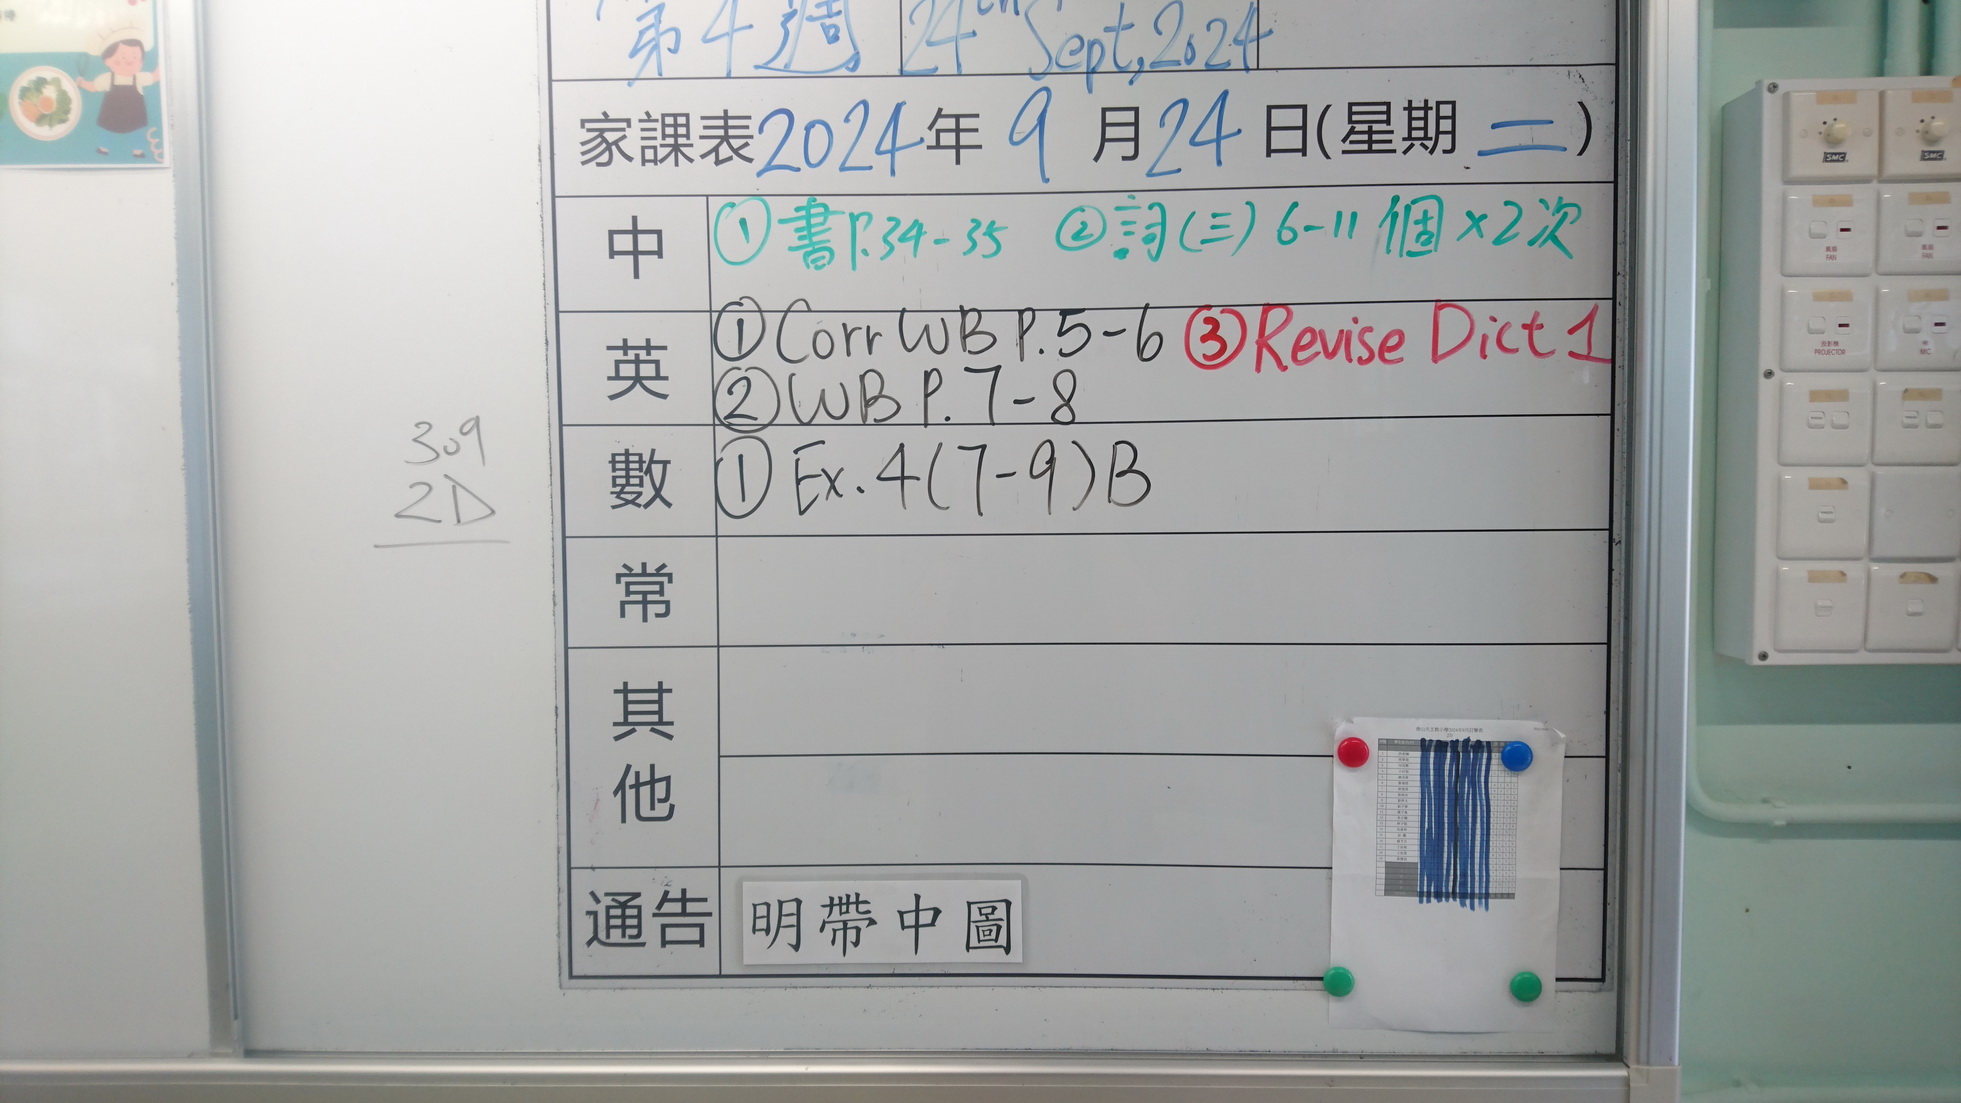 第4週 24th Sept, 2024
家課表2024年9月24日(星期二)
中 ①書P.34-35 ②詞(三)6-11個×2次
英 ①Corr WB P.5-6 ③Revise Dict 1
②WB P.7-8
數 ①Ex.4(7-9)B
309
2D
常
其他
通告 明帶中圖
SMC
SMC
風扇
FAN
風扇
FAN
投影機
PROJECTOR